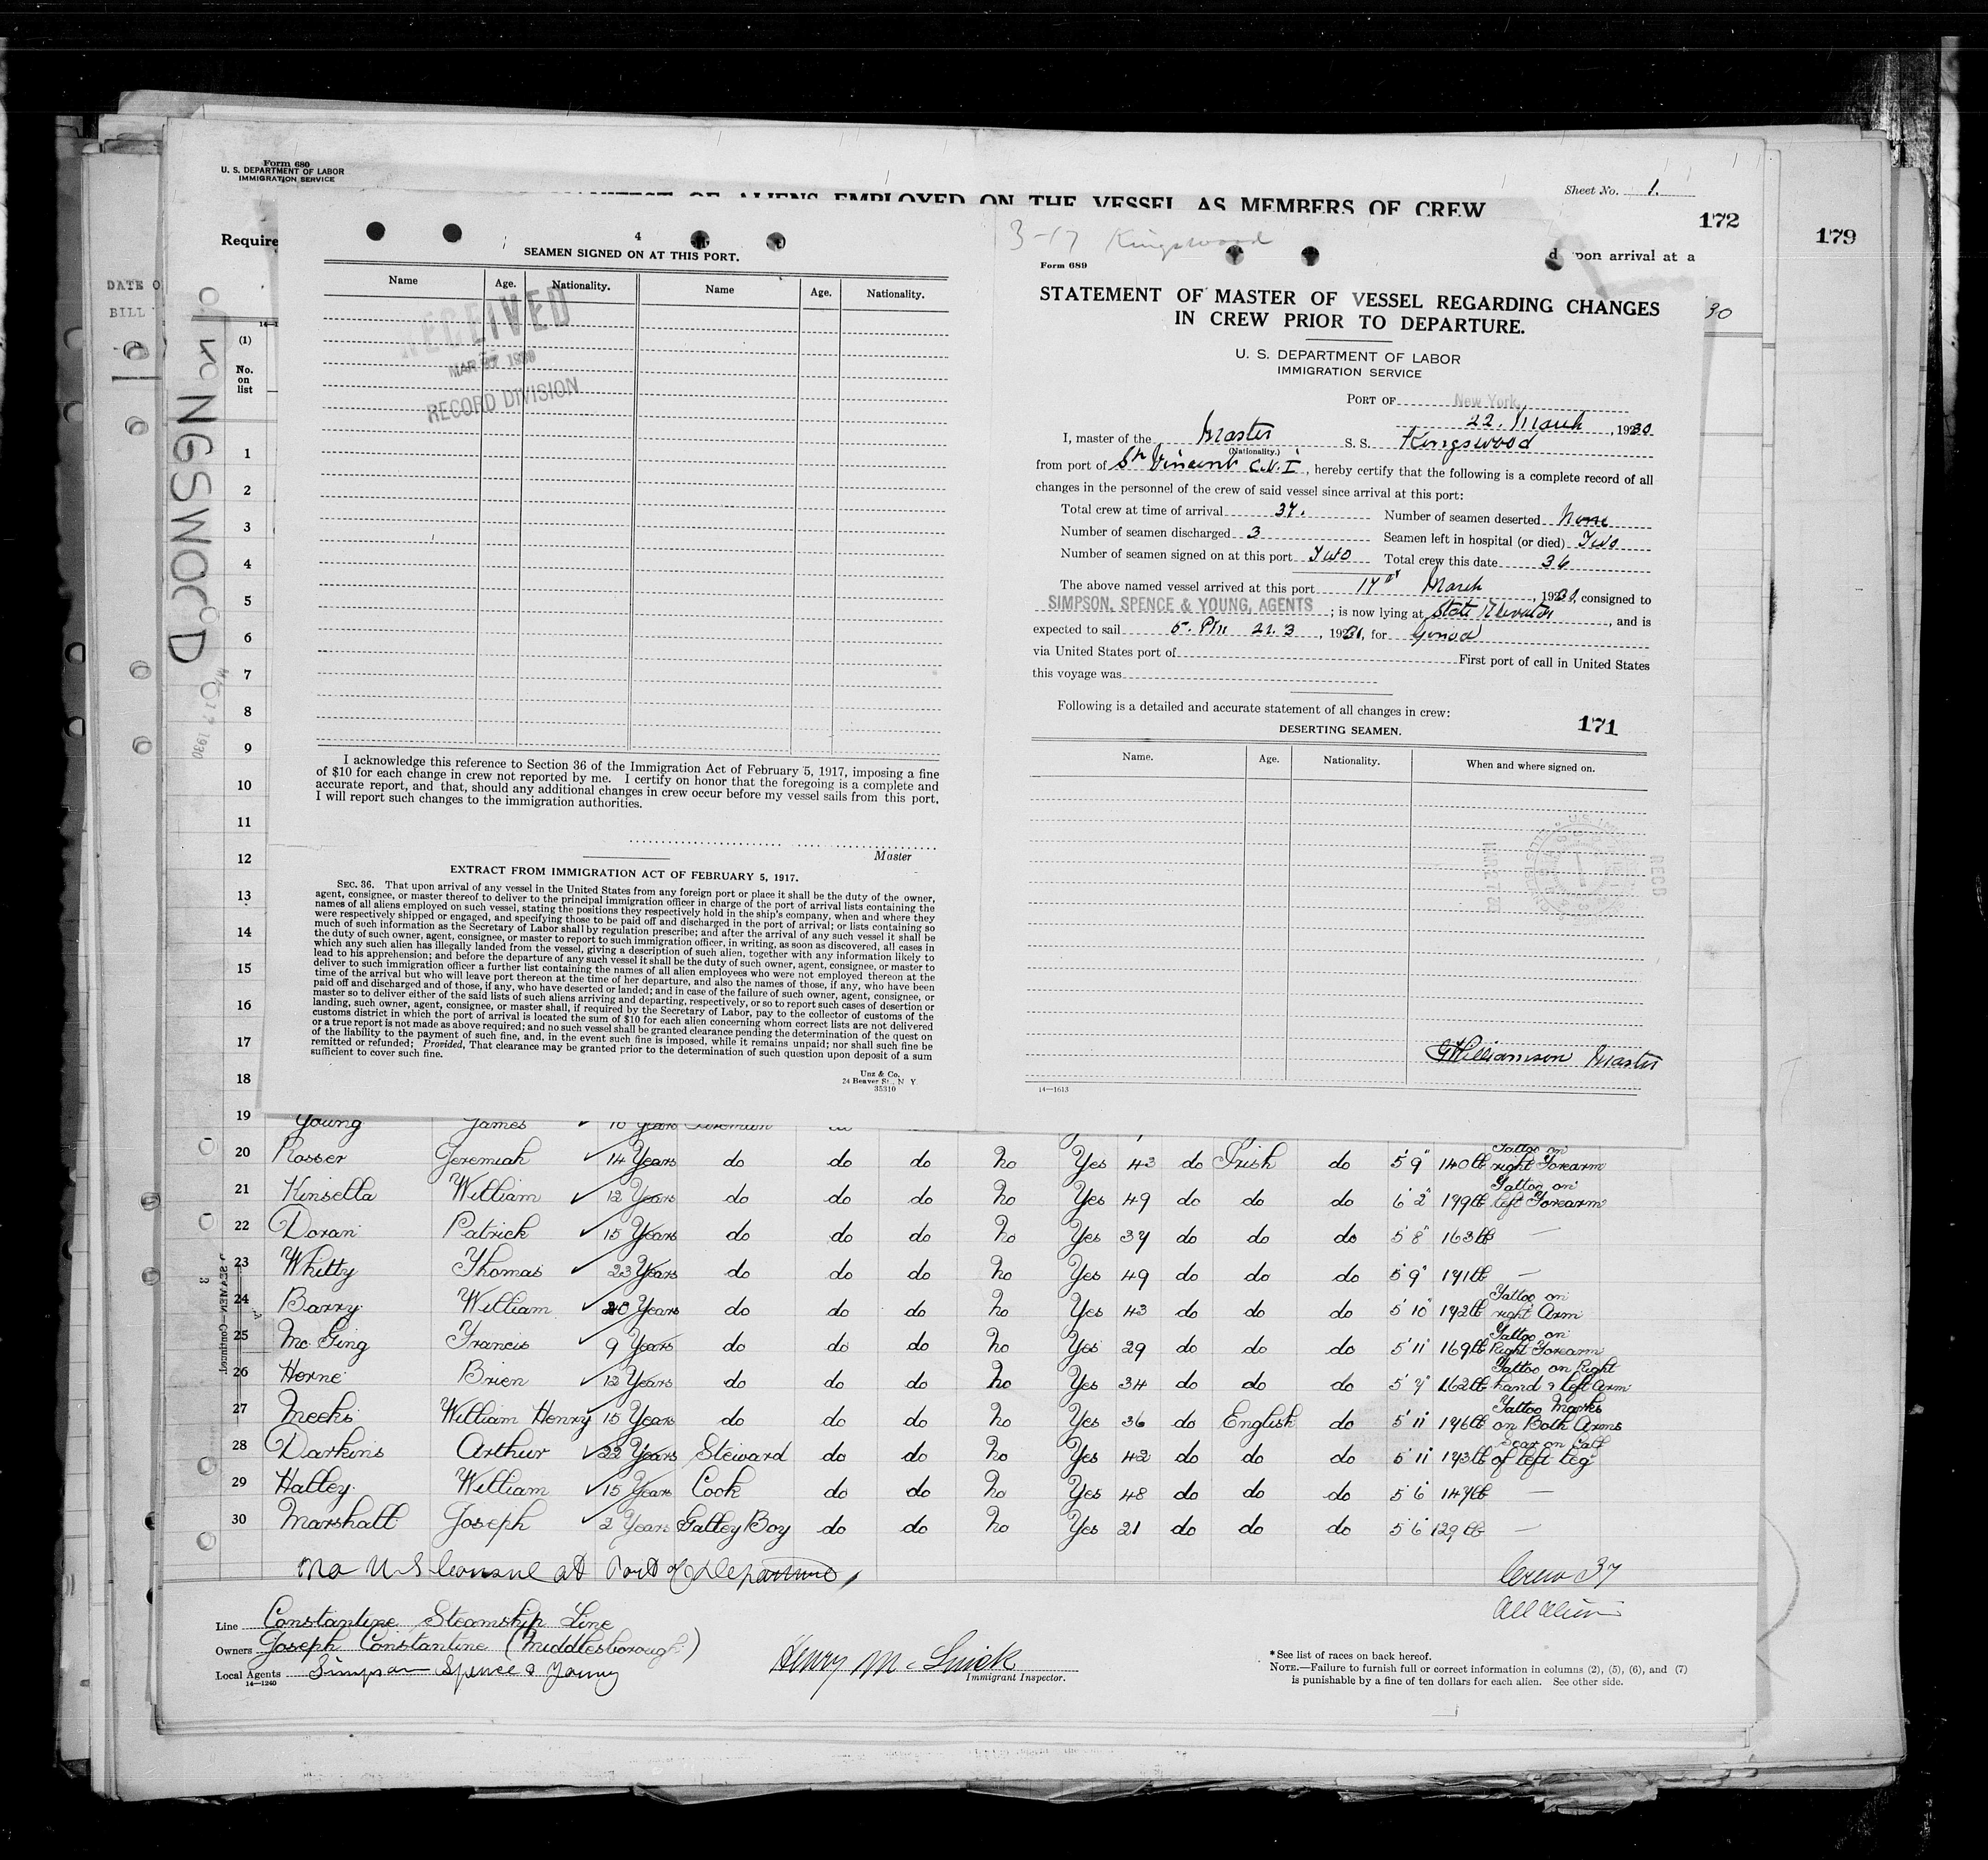 Form 680
U. S. DEPARTMENT OF LABOR
IMMIGRATION SERVICE
OF ALIENS EMPLOYED ON THE VESSEL AS MEMBERS OF CREW
Sheet No. 1.
172
179
Require
d upon arrival at a
30
DATE O
BILL
NGSWOOD
1930
(1)
No.
on
list
1
2
3
4
5
6
7
8
9
10
11
12
13
14
15
16
17
18
4
SEAMEN SIGNED ON AT THIS PORT.
Name Age. Nationality. Name Age. Nationality.
RECEIVED
MAR 27 1930
RECORD DIVISION
I acknowledge this reference to Section 36 of the Immigration Act of February 5, 1917, imposing a fine
of $10 for each change in crew not reported by me. I certify on honor that the foregoing is a complete and
accurate report, and that, should any additional changes in crew occur before my vessel sails from this port,
I will report such changes to the immigration authorities.
Master
EXTRACT FROM IMMIGRATION ACT OF FEBRUARY 5, 1917.
SEC. 36. That upon arrival of any vessel in the United States from any foreign port or place it shall be the duty of the owner,
agent, consignee, or master thereof to deliver to the principal immigration officer in charge of the port of arrival lists containing the
names of all aliens employed on such vessel, stating the positions they respectively hold in the ship's company, when and where they
were respectively shipped or engaged, and specifying those to be paid off and discharged in the port of arrival; or lists containing so
much of such information as the Secretary of Labor shall by regulation prescribe; and after the arrival of any such vessel it shall be
the duty of such owner, agent, consignee, or master to report to such immigration officer, in writing, as soon as discovered, all cases in
which any such alien has illegally landed from the vessel, giving a description of such alien, together with any information likely to
lead to his apprehension; and before the departure of any such vessel it shall be the duty of such owner, agent, consignee, or master to
deliver to such immigration officer a further list containing the names of all alien employees who were not employed thereon at the
time of the arrival but who will leave port thereon at the time of her departure, and also the names of those, if any, who have been
paid off and discharged and of those, if any, who have deserted or landed; and in case of the failure of such owner, agent, consignee, or
master so to deliver either of the said lists of such aliens arriving and departing, respectively, or so to report such cases of desertion or
landing, such owner, agent, consignee, or master shall, if required by the Secretary of Labor, pay to the collector of customs of the
customs district in which the port of arrival is located the sum of $10 for each alien concerning whom correct lists are not delivered
or a true report is not made as above required; and no such vessel shall be granted clearance pending the determination of the quest on
of the liability to the payment of such fine, and, in the event such fine is imposed, while it remains unpaid; nor shall such fine be
remitted or refunded; Provided, That clearance may be granted prior to the determination of such question upon deposit of a sum
sufficient to cover such fine.
Unz & Co.
24 Beaver St., N Y
35310
3-17 Kingswood
Form 689
STATEMENT OF MASTER OF VESSEL REGARDING CHANGES
IN CREW PRIOR TO DEPARTURE.
U. S. DEPARTMENT OF LABOR
IMMIGRATION SERVICE
PORT OF New York,
22. March, 1930
I, master of the Master S. S. Kingswood
(Nationality.)
from port of St Vincent C.V.I, hereby certify that the following is a complete record of all
changes in the personnel of the crew of said vessel since arrival at this port:
Total crew at time of arrival 37. Number of seamen deserted None
Number of seamen discharged 3 Seamen left in hospital (or died) Two
Number of seamen signed on at this port Two Total crew this date 36
The above named vessel arrived at this port 17th March, 1930, consigned to
SIMPSON, SPENCE & YOUNG, AGENTS; is now lying at State Elevator, and is
expected to sail 5. PM 22.3, 1930, for
via United States port of First port of call in United States
this voyage was
Following is a detailed and accurate statement of all changes in crew:
171
DESERTING SEAMEN.
Name. Age. Nationality. When and where signed on.
REC'D
GWilliamson Master
14—1613
19 Young James 10 Years Foreman
20 Rosser Jeremiah 14 Years do do do No Yes 43 do Irish do 5' 9" 140lb Tattoo on right Forearm
21 Kinsella William 12 Years do do do No Yes 49 do do do 6' 2" 199lb Tattoo on left Forearm
22 Doran Patrick 15 Years do do do No Yes 37 do do do 5' 8" 163lb —
23 Whitty Thomas 23 Years do do do No Yes 49 do do do 5' 9" 191lb —
24 Barry William 20 Years do do do No Yes 43 do do do 5' 10" 192lb Tattoo on right Arm
25 Mc. Ging Francis 9 Years do do do No Yes 29 do do do 5' 11" 169lb Tattoo on Right Forearm
26 Horne Brien 12 Years do do do No Yes 34 do do do 5' 7" 162lb Tattoo on Right hand & left Arm
27 Meeks William Henry 15 Years do do do No Yes 36 do English do 5' 11" 196lb Tattoo Marks on Both Arms
28 Darkins Arthur 22 Years Steward do do No Yes 42 do do do 5' 11" 193lb Scar on Calf of left leg
29 Halley William 15 Years Cook do do No Yes 48 do do do 5' 6" 147lb —
30 Marshall Joseph 2 Years Galley Boy do do No Yes 21 do do do 5' 6" 129lb —
No U S Consul at Port of Departure,
Crew 37
all alien
Line Constantine Steamship Line
Owners Joseph Constantine (Middlesborough)
Local Agents Simpson Spence & Young
14—1240
Henry Mc
Immigrant Inspector.
*See list of races on back hereof.
NOTE.—Failure to furnish full or correct information in columns (2), (5), (6), and (7)
is punishable by a fine of ten dollars for each alien. See other side.